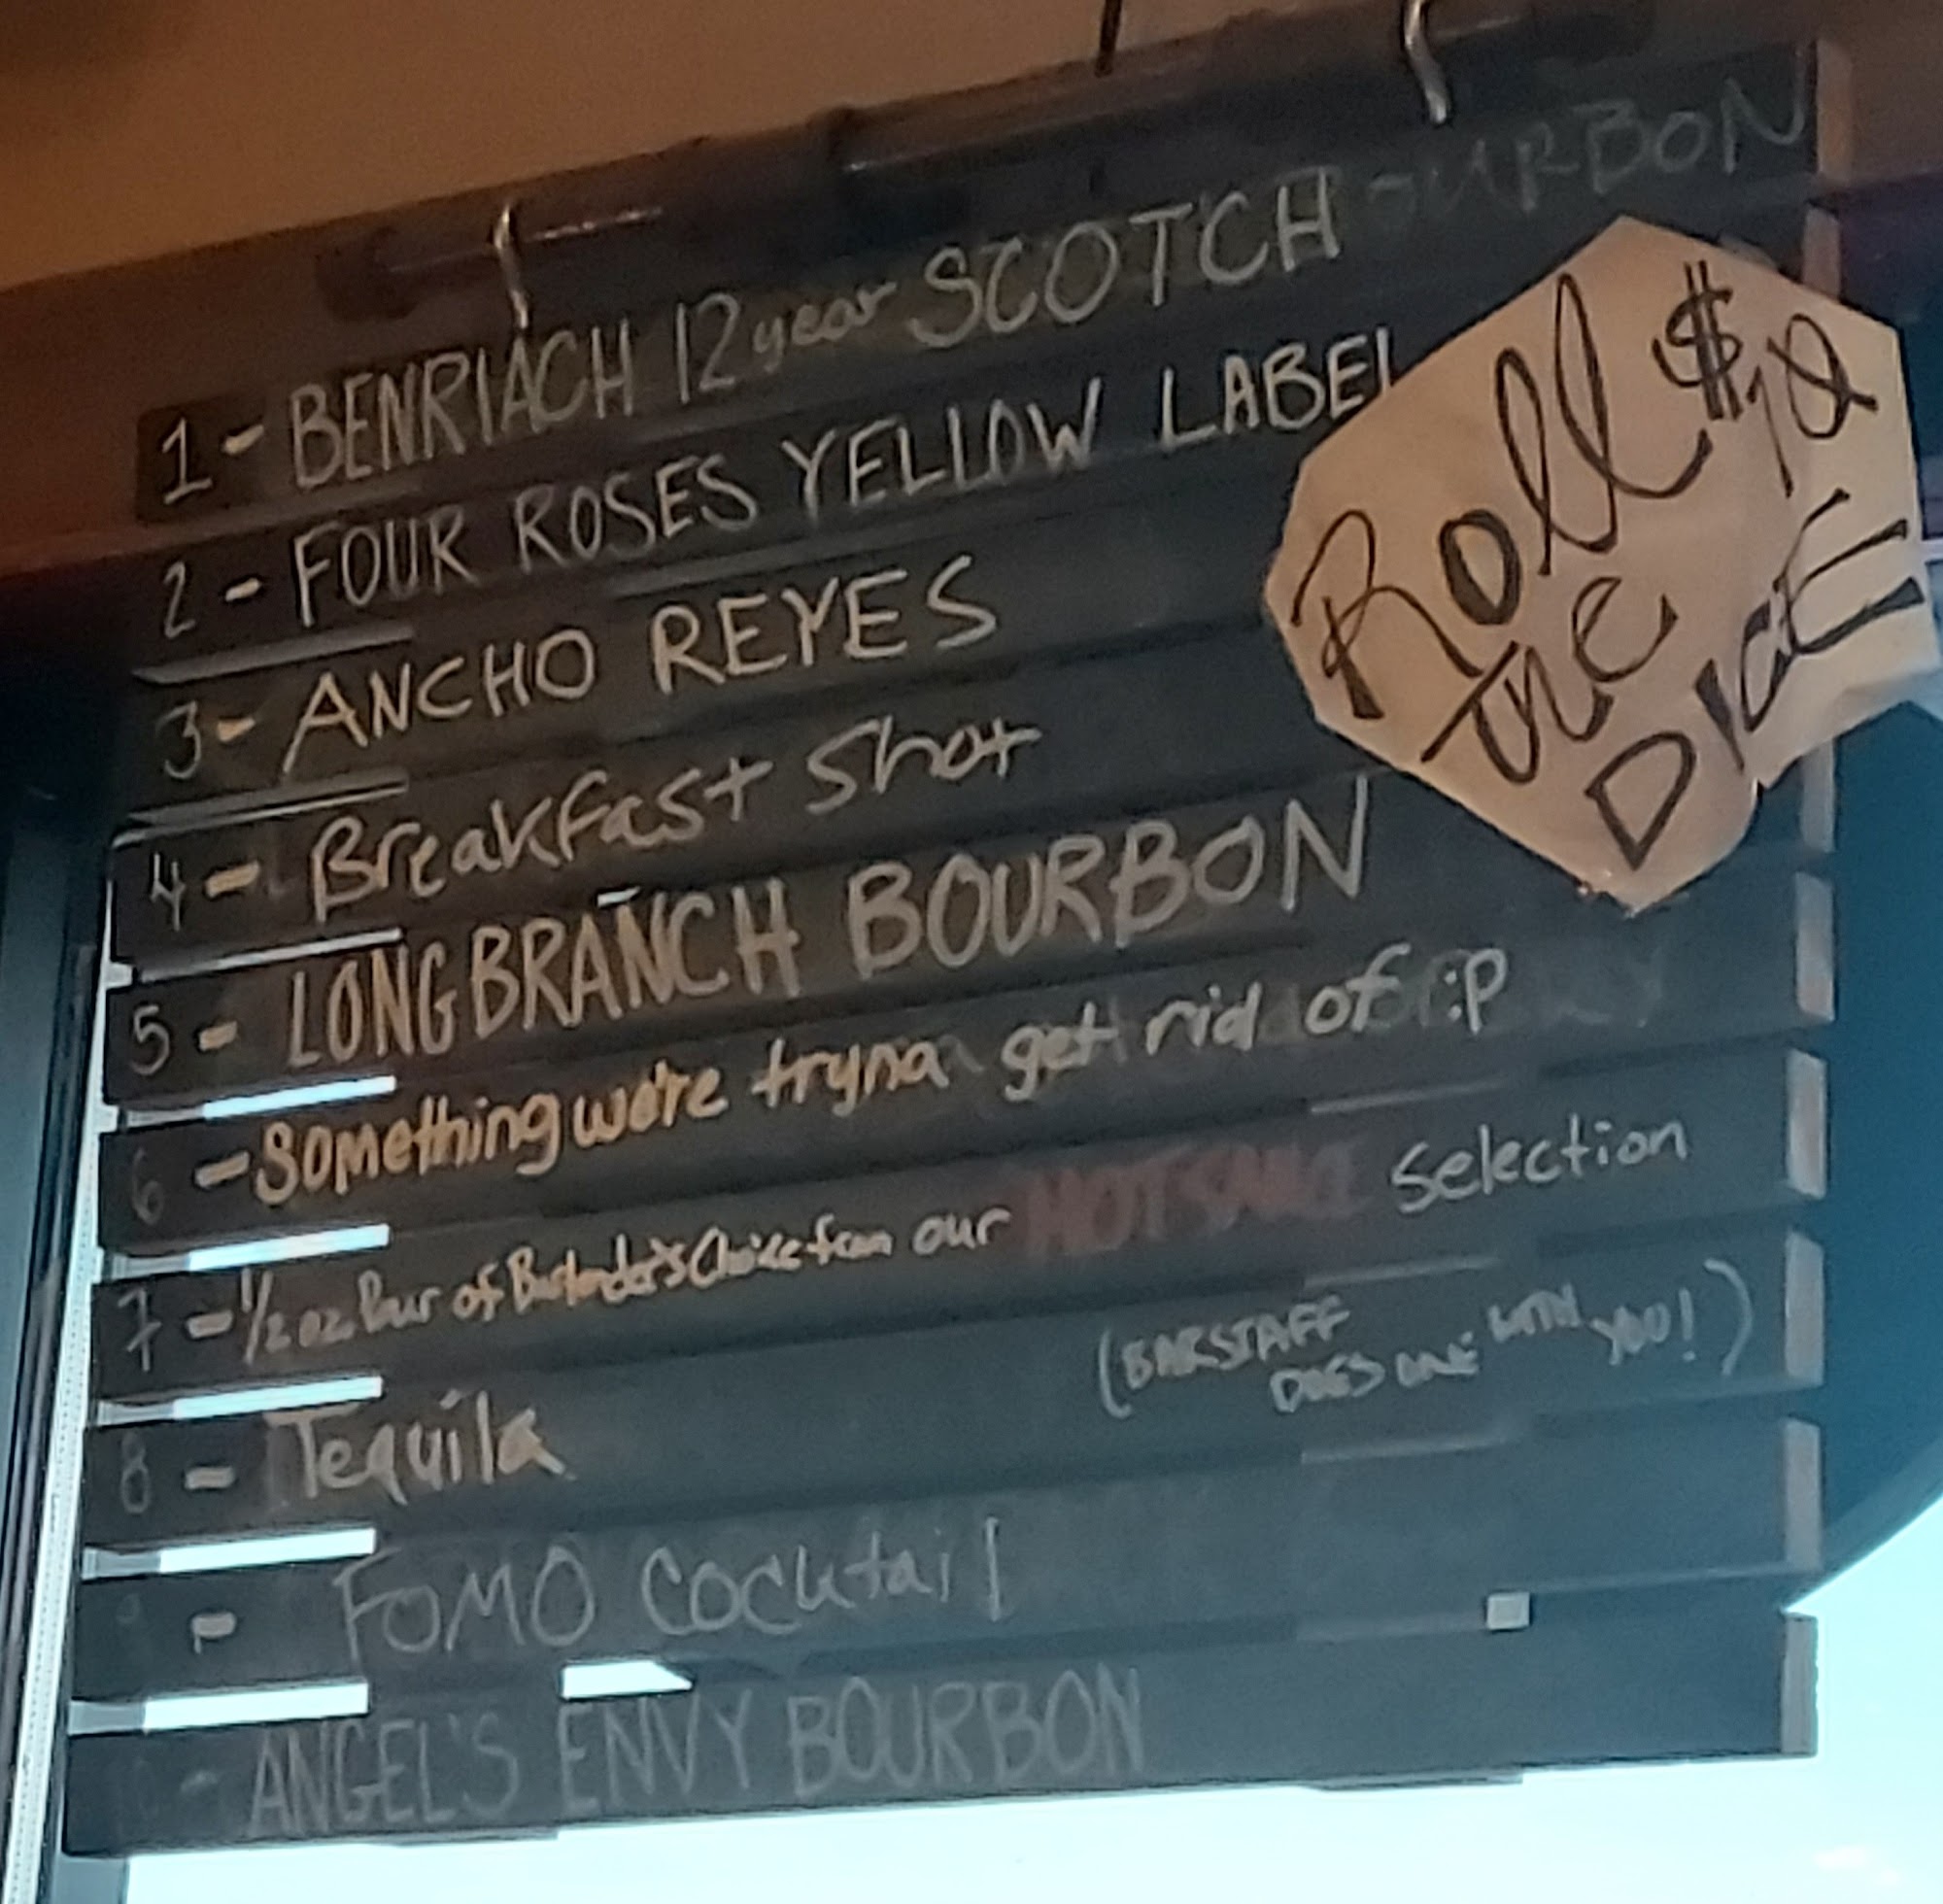 1 - BENRIACH 12 year SCOTCH
2 - FOUR ROSES YELLOW LABEL
3 - ANCHO REYES
4 - Breakfast Shot
5 - LONGBRANCH BOURBON
6 - Something we're tryna get rid of :P
7 - 1/2 oz Pour of Bartender's Choice from our HOT SAUCE Selection
(BARSTAFF DOES ONE WITH YOU!)
8 - Tequila
9 - FOMO Cocktail
10 - ANGEL'S ENVY BOURBON
Roll
the
DICE